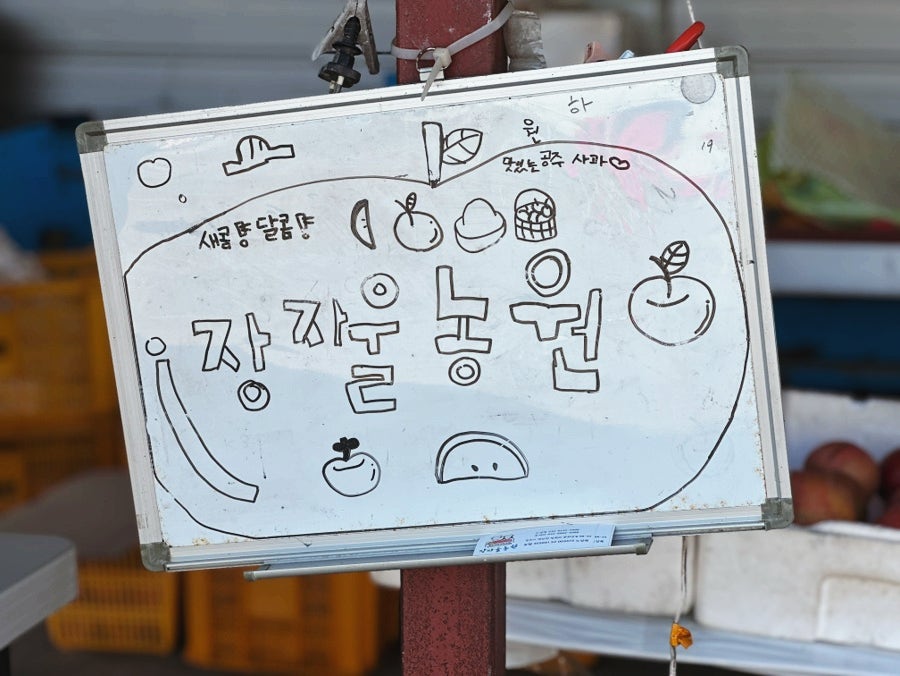 하
원
19
맛있는 공주 사과♡
새콤 달콤
장자울농원